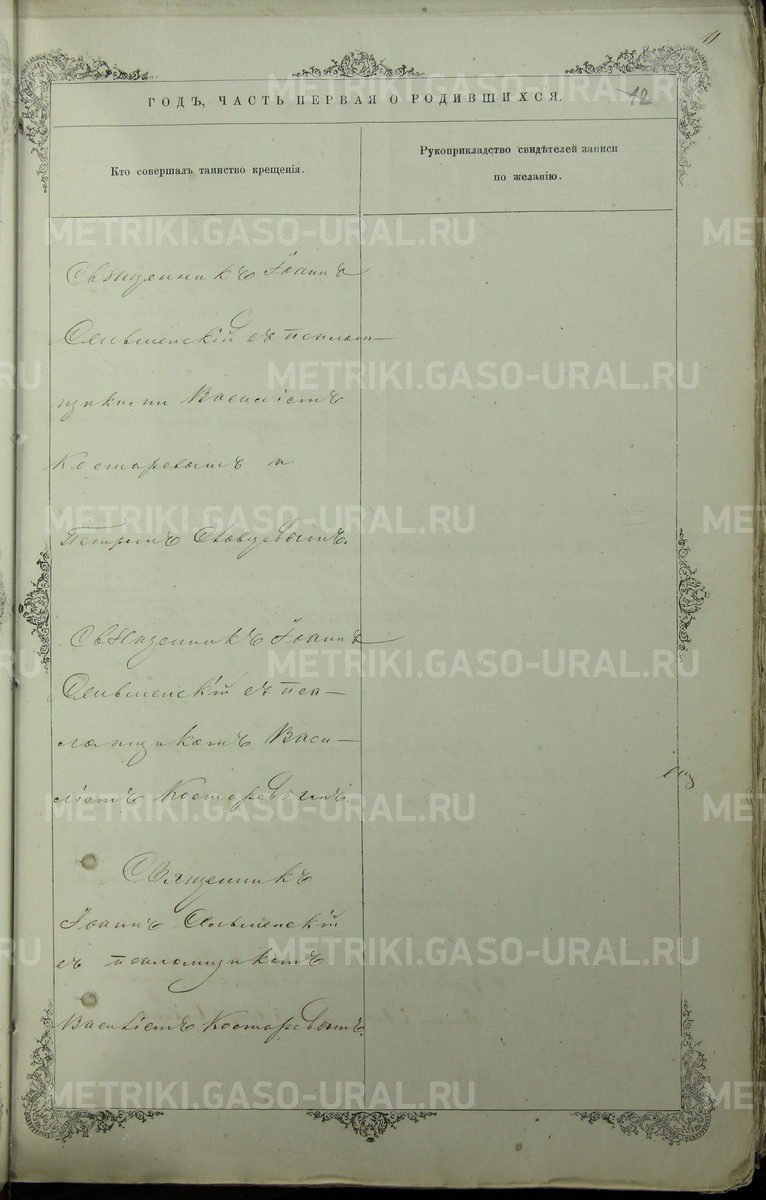 11
12
ГОДЪ, ЧАСТЬ ПЕРВАЯ О РОДИВШИХСЯ.
Кто совершалъ таинство крещенія.
Рукоприкладство свидѣтелей записи
по желанію.
Священникъ Іоаннъ
съ псалом-
щиками Василіемъ
Костаревымъ и
Петромъ
Священникъ Іоаннъ
съ пса-
ломщикомъ Васи-
ліемъ Костаревымъ.
Священникъ
Іоаннъ
съ псаломщикомъ
Василіемъ Костаревымъ.
METRIKI.GASO-URAL.RU